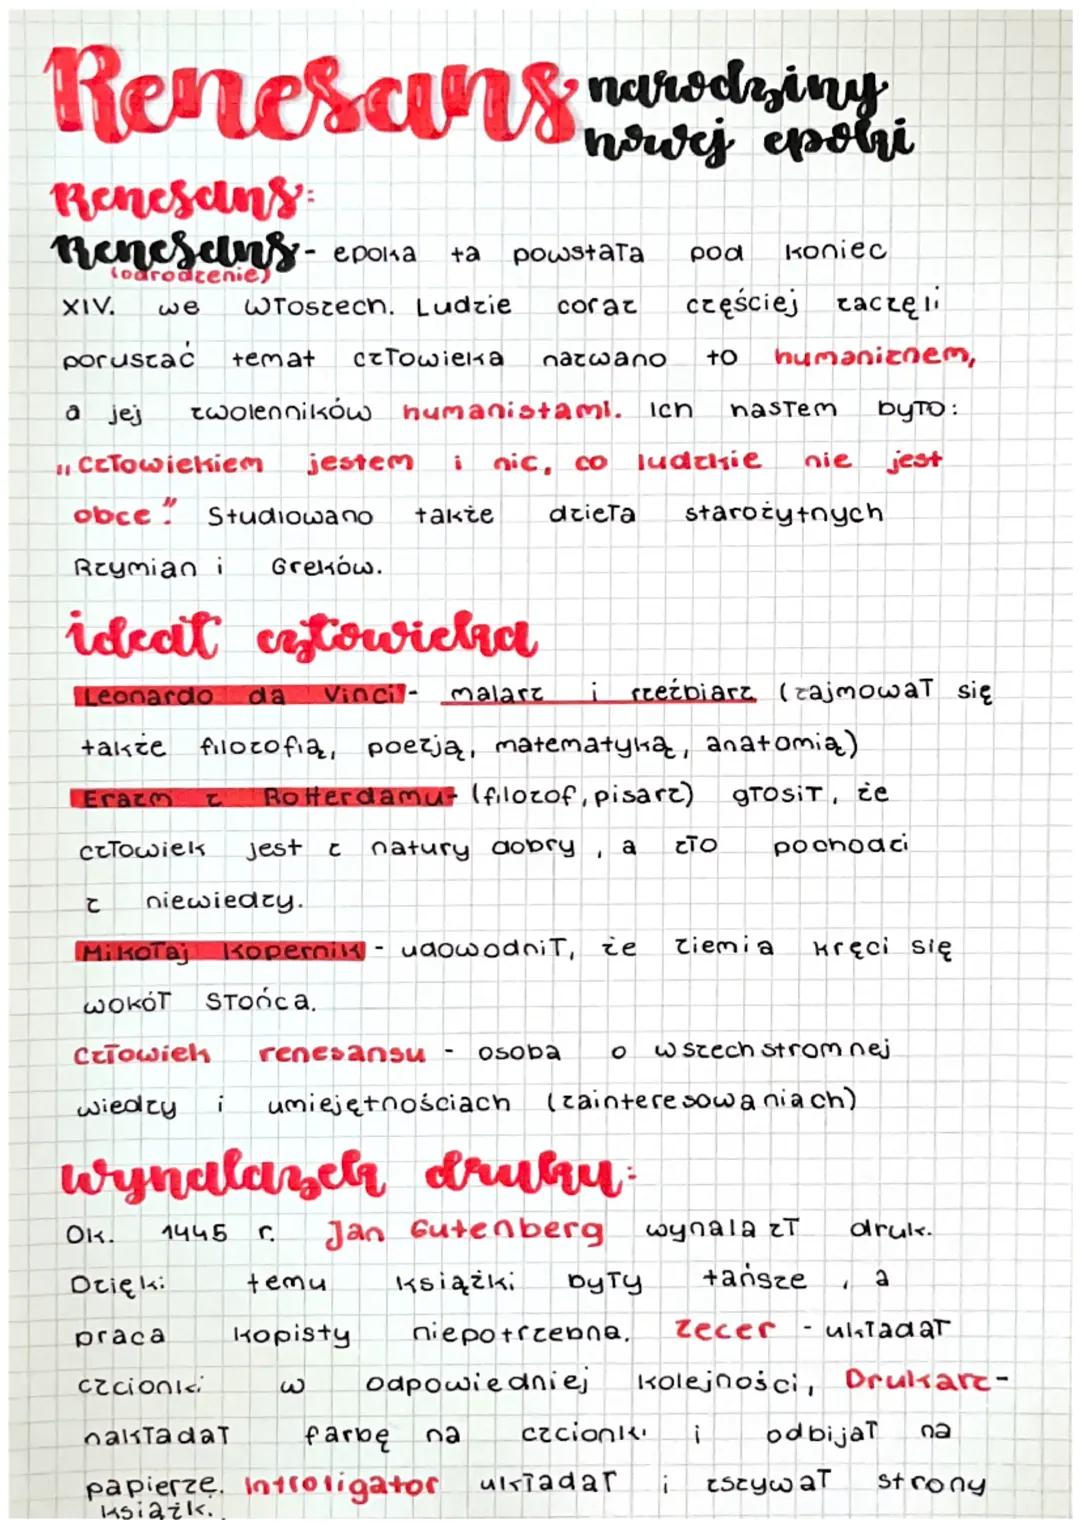 Renesans narodziny
nowej epoki
Renesans:
Renesans - epoka ta powstała pod koniec
(odrodzenie)
XIV. we Włoszech. Ludzie coraz częściej zaczęli
poruszać temat człowieka nazwano to humaniznem,
a jej zwolenników humanistami. Ich hasłem było:
„Człowiekiem jestem i nic, co ludzkie nie jest
obce". Studiowano także dzieła starożytnych
Rzymian i Greków.
ideał człowieka
Leonardo da Vinci - malarz i rzeźbiarz (zajmował się
także filozofią, poezją, matematyką, anatomią)
Erazm z Rotterdamu - (filozof, pisarz) głosił, że
człowiek jest z natury dobry, a zło pochodzi
z niewiedzy.
Mikołaj Kopernik - udowodnił, że ziemia kręci się
wokół Słońca.
Człowiek renesansu - osoba o wszechstromnej
wiedzy i umiejętnościach (zainteresowaniach)
wynalazek druku:
Ok. 1445 r. Jan Gutenberg wynalazł druk.
Dzięki temu książki były tańsze, a
praca kopisty niepotrzebna. Zecer - układał
czcionki w odpowiedniej kolejności, Drukarz -
nakładał farbę na czcionki i odbijał na
papierze. Introligator układał i zszywał strony
książk.